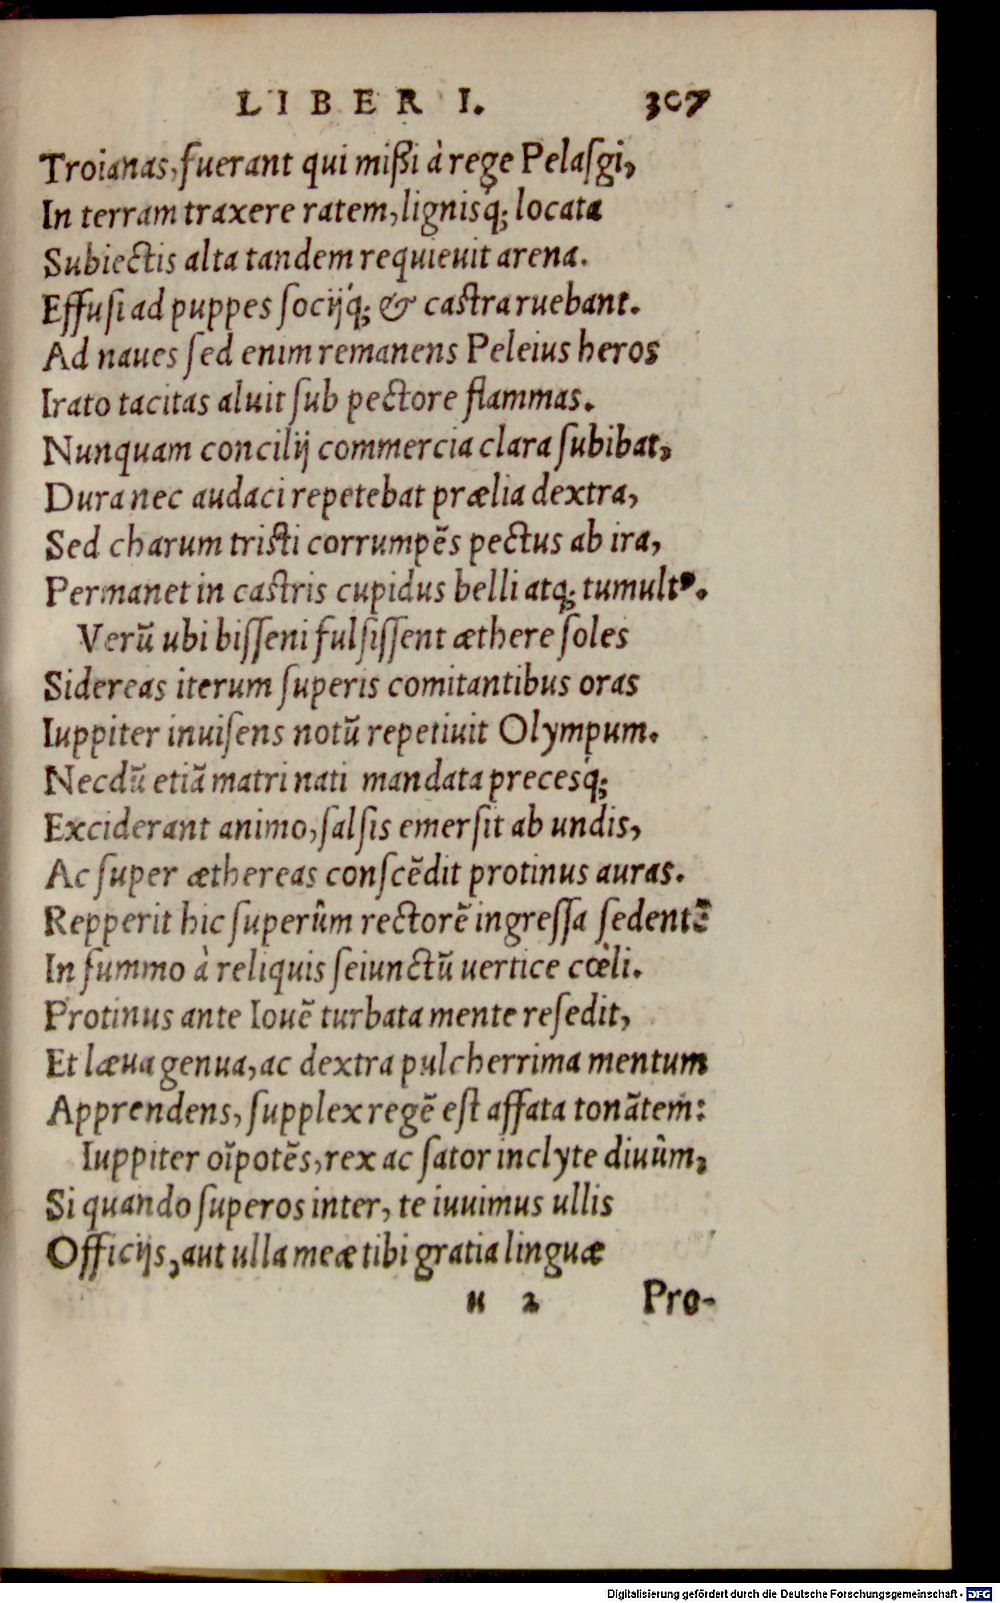 LIBER I. 307
Troianas, fuerant qui mißi à rege Pelaſgi,
In terram traxere ratem, lignisq́; locata
Subiectis alta tandem requieuit arena.
Effuſi ad puppes ſocijq́; & caſtra ruebant.
Ad naues ſed enim remanens Peleius heros
Irato tacitas aluit ſub pectore flammas.
Nunquam concilij commercia clara ſubibat,
Dura nec audaci repetebat prælia dextra,
Sed charum triſti corrumpẽs pectus ab ira,
Permanet in caſtris cupidus belli atq; tumultꝰ.
Verũ ubi biſſeni fulſiſſent æthere ſoles
Sidereas iterum ſuperis comitantibus oras
Iuppiter inuiſens notũ repetiuit Olympum.
Necdũ etiã matri nati mandata precesq́;
Exciderant animo, ſalſis emerſit ab undis,
Ac ſuper æthereas conſcẽdit protinus auras.
Repperit hic ſuperûm rectorẽ ingreſſa ſedentẽ
In ſummo à reliquis ſeiunctũ uertice cœli.
Protinus ante Iouẽ turbata mente reſedit,
Et læua genua, ac dextra pulcherrima mentum
Apprendens, ſupplex regẽ eſt affata tonãtem:
Iuppiter oĩpotẽs, rex ac ſator inclyte diuûm,
Si quando ſuperos inter, te iuuimus ullis
Officijs, aut ulla meæ tibi gratia linguæ
u 2 Pro-
Digitalisierung gefördert durch die Deutsche Forschungsgemeinschaft - DFG